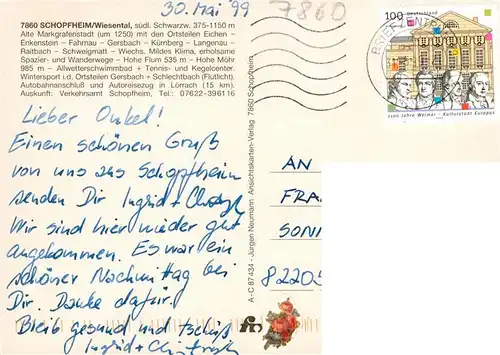 30. Mai '99
7860
7860 SCHOPFHEIM/Wiesental, südl. Schwarzw. 375-1150 m
Alte Markgrafenstadt (um 1250) mit den Ortsteilen Eichen -
Enkenstein - Fahrnau - Gersbach - Kürnberg - Langenau -
Raitbach - Schweigmatt - Wiechs. Mildes Klima, erholsame
Spazier- und Wanderwege - Hohe Flum 535 m - Hohe Möhr
985 m - Allwetterschwimmbad + Tennis- und Kegelcenter.
Wintersport i.d. Ortsteilen Gersbach + Schlechtbach (Flutlicht).
Autobahnanschluß und Autoreisezug in Lörrach (15 km).
Auskunft: Verkehrsamt Schopfheim, Tel.: 07622-396116
Lieber Onkel!
Einen schönen Gruß
von uns aus Schopfheim
senden Dir Ingrid + 
Wir sind hier wieder gut
angekommen. Es war ein
schöner Nachmittag bei
Dir. Danke dafür.
Bleib gesund und tschüß
Ingrid +
A - C 87434 - Jürgen Neumann Ansichtskarten-Verlag 7860 Schopfheim
100 Deutschland
BRIEFZENTRUM
1100 Jahre Weimar - Kulturstadt Europas
AN
FRA
SONN
82205